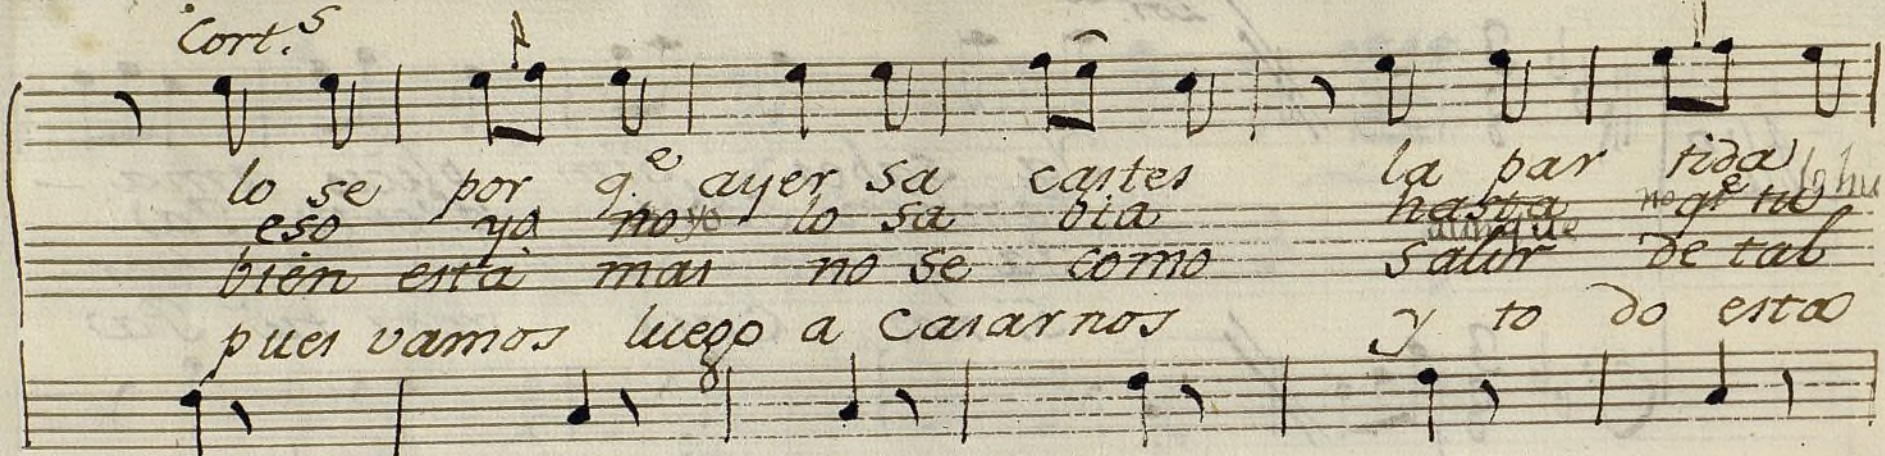 Cort.s
lo se por q.e ayer sa castes la par tida lo hu
eso ya no yo lo sa bia hasta no q.e no
aunque
bien està mas no se como salir de tal
pues vamos luego a Casarnos y to do esta